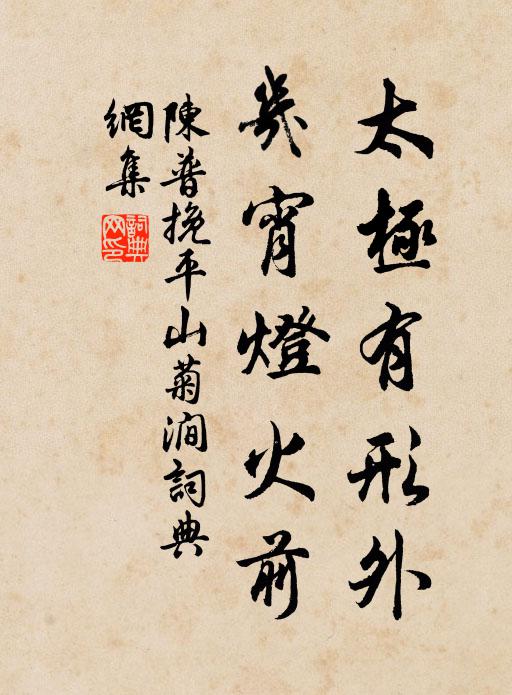 太極有形外
幾宵燈火前
陳普挽平山菊澗詞典
網集
詞典網印